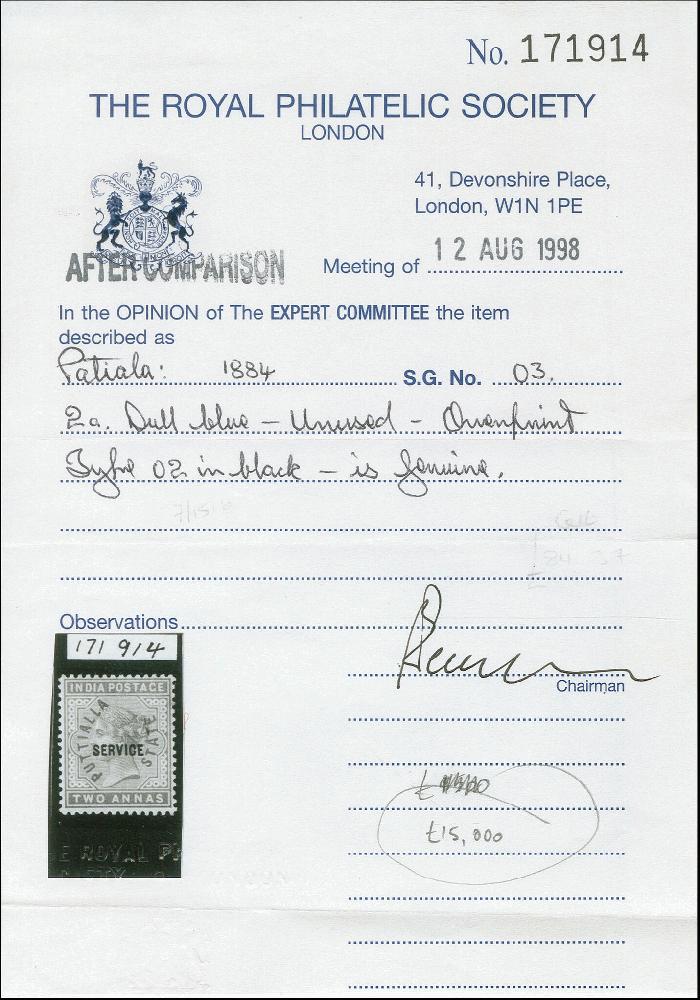 No. 171914
THE ROYAL PHILATELIC SOCIETY
LONDON
41, Devonshire Place,
London, W1N 1PE
AFTER COMPARISON
Meeting of 12 AUG 1998
In the OPINION of The EXPERT COMMITTEE the item
described as
Patiala: 1884 S.G. No. 03.
2a. Dull blue – Unused – Overprint
Type 02 in black – is genuine.
Observations
171 914
INDIA POSTAGE
PUTTIALLA
SERVICE
STATE
TWO ANNAS
E ROYAL PH
Chairman
£15,000